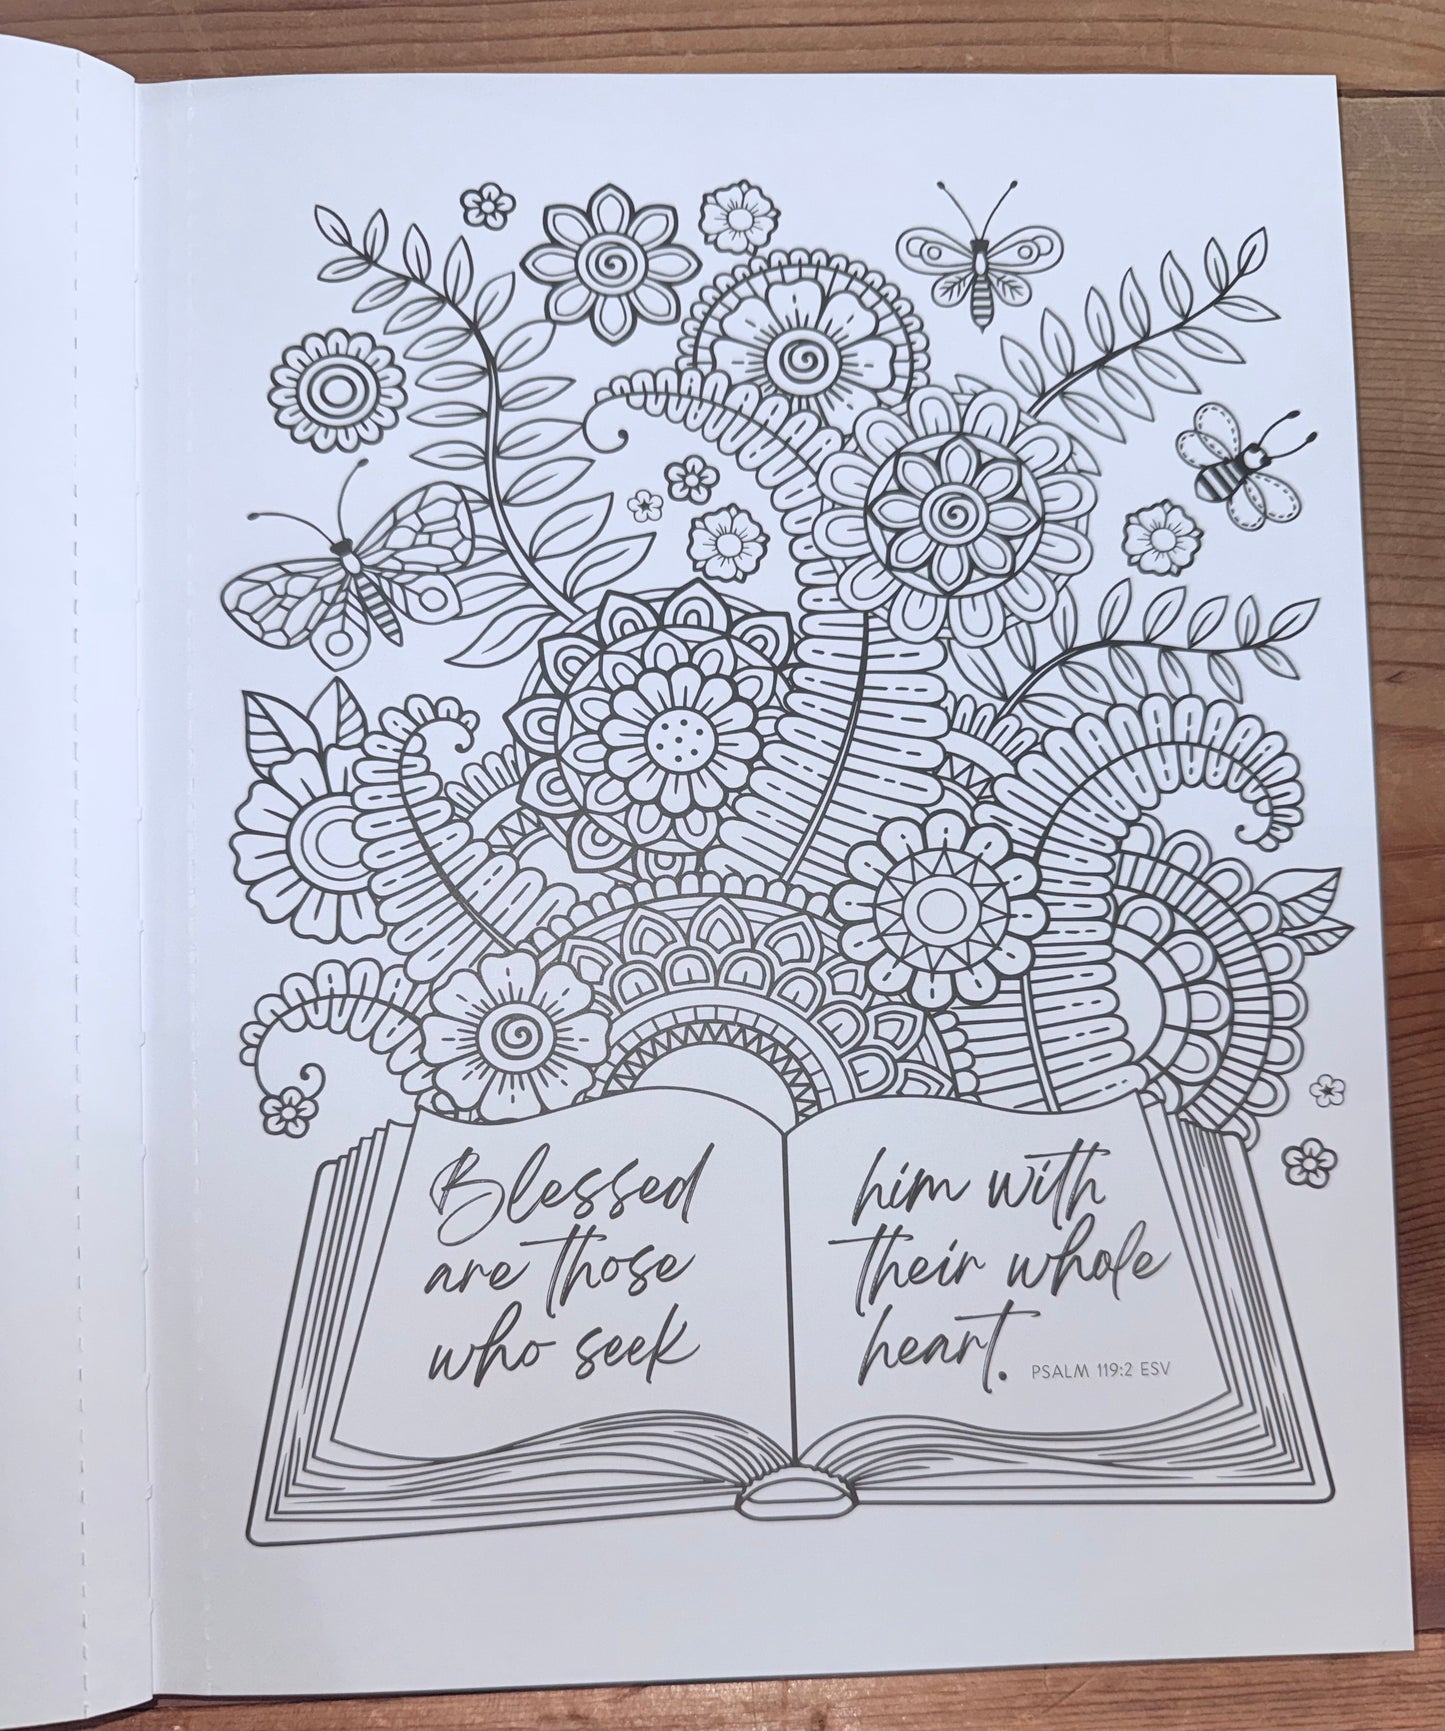 Blessed
are those
who seek
him with
their whole
heart.
PSALM 119:2 ESV